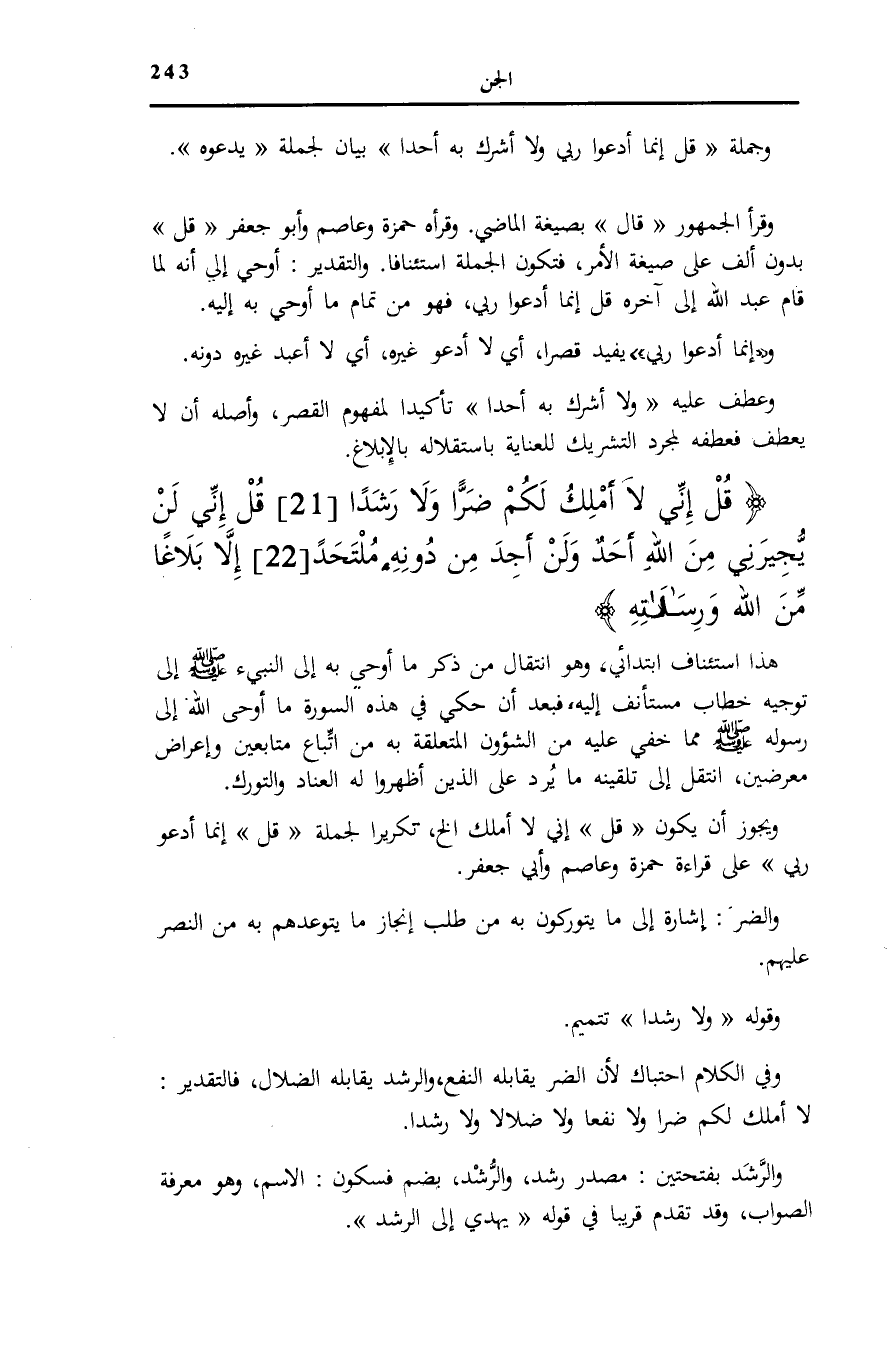 243
الجن
وجملة « قل إنما أدعوا ربي ولا أشرك به أحدا » بيان لجملة « يدعوه ».
وقرأ الجمهور « قال » بصيغة الماضي. وقرأه حمزة وعاصم وأبو جعفر « قل »
بدون ألف على صيغة الأمر، فتكون الجملة استئنافا. والتقدير : أوحي إلي أنه لما
قام عبد الله إلى آخره قل إنما أدعوا ربي، فهو من تمام ما أوحي به إليه.
و«إنما أدعوا ربي» يفيد قصرا، أي لا أدعو غيره، أي لا أعبد غيره دونه.
وعطف عليه « ولا أشرك به أحدا » تأكيدا لمفهوم القصر، وأصله أن لا
يعطف فعطفه لمجرد التشريك للعناية باستقلاله بالإبلاغ.
﴿ قُلْ إِنِّي لاَ أَمْلِكُ لَكُمْ ضَرًّا وَلَا رَشَدًا [21] قُلْ إِنِّي لَنْ
يُّجِيرَنِي مِنَ اللهِ أَحَدٌ وَلَنْ أَجِدَ مِن دُونِهِۦ مُلْتَحَدًا [22] إِلَّا بَلَاغًا
مِّنَ الله وَرِسَـٰلَـٰتِهِ ﴾
هذا استئناف ابتدائي، وهو انتقال من ذكر ما أوحي به إلى النبيء ﷺ إلى
توجيه خطاب مستأنف إليه، فبعد أن حكي في هذه السورة ما أوحى الله إلى
رسوله ﷺ مما خفي عليه من الشؤون المتعلقة به من اتِّباع متابعين وإعراض
معرضين، انتقل إلى تلقينه ما يُرد على الذين أظهروا له العناد والتورك.
ويجوز أن يكون « قل » إني لا أملك الخ، تكريرا لجملة « قل » إنما أدعو
ربي » على قراءة حمزة وعاصم وأبي جعفر.
والضر : إشارة إلى ما يتوركون به من طلب إنجاز ما يتوعدهم به من النصر
عليهم.
وقوله « ولا رشدا » تتميم.
وفي الكلام احتباك لأن الضر يقابله النفع، والرشد يقابله الضلال، فالتقدير :
لا أملك لكم ضرا ولا نفعا ولا ضلالا ولا رشدا.
والرَّشَد بفتحتين : مصدر رشد، والرُّشْد، بضم فسكون : الاسم، وهو معرفة
الصواب، وقد تقدم قريبا في قوله « يهدي إلى الرشد ».